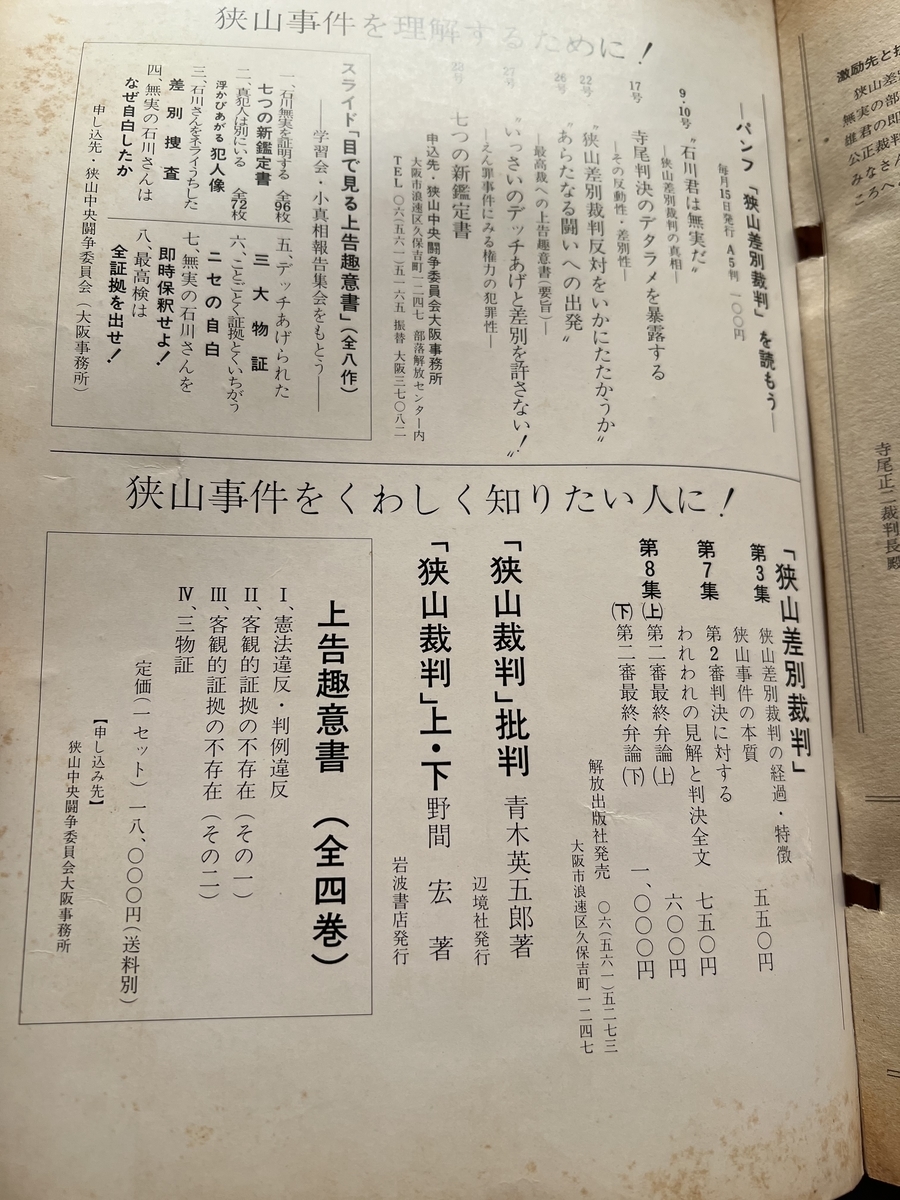 狭山事件を理解するために！
―パンフ「狭山差別裁判」を読もう―
毎月15日発行 A5判 一〇〇円
9・10号
〝石川君は無実だ〟
―狭山差別裁判の真相―
17号
寺尾判決のデタラメを暴露する
―その反動性・差別性―
22号
〝狭山差別裁判反対をいかにたたかうか〟
26号
〝あらたなる闘いへの出発〟
―最高裁への上告趣意書(要旨)―
27号
〝いっさいのデッチあげと差別を許さない！〟
―えん罪事件にみる権力の犯罪性―
七つの新鑑定書
申込先・狭山中央闘争委員会大阪事務所
大阪市浪速区久保吉町一二四七 部落解放センター内
TEL 〇六(五六一)五一六五 振替 大阪三七〇八二
スライド「目で見る上告趣意書」(全八作)
――学習会・小真相報告集会をもとう――
一、石川無実を証明する
七つの新鑑定書 全96枚
二、真犯人は別にいる
浮かびあがる 犯人像 全72枚
三、石川さんをネライうちした
差別捜査
四、無実の石川さんは
なぜ自白したか
五、デッチあげられた
三大物証
六、ことごとく証拠とくいちがう
ニセの自白
七、無実の石川さんを
即時保釈せよ！
八、最高検は
全証拠を出せ！
申し込先・狭山中央闘争委員会(大阪事務所)
狭山事件をくわしく知りたい人に！
「狭山差別裁判」
第3集 狭山差別裁判の経過・特徴
狭山事件の本質 五五〇円
第7集 第2審判決に対する
われわれの見解と判決全文 七五〇円
第8集(上) 第二審最終弁論(上) 六〇〇円
(下) 第二審最終弁論(下) 一、〇〇〇円
解放出版社発売 〇六(五六一)五二七三
大阪市浪速区久保吉町一二四七
「狭山裁判」批判 青木英五郎著
辺境社発行
「狭山裁判」上・下 野間 宏 著
岩波書店発行
上告趣意書 (全四巻)
Ⅰ、憲法違反・判例違反
Ⅱ、客観的証拠の不存在(その一)
Ⅲ、客観的証拠の不存在(その二)
Ⅳ、三物証
定価(一セット)一八、〇〇〇円(送料別)
【申し込み先】
狭山中央闘争委員会大阪事務所
寺尾正二裁判長殿